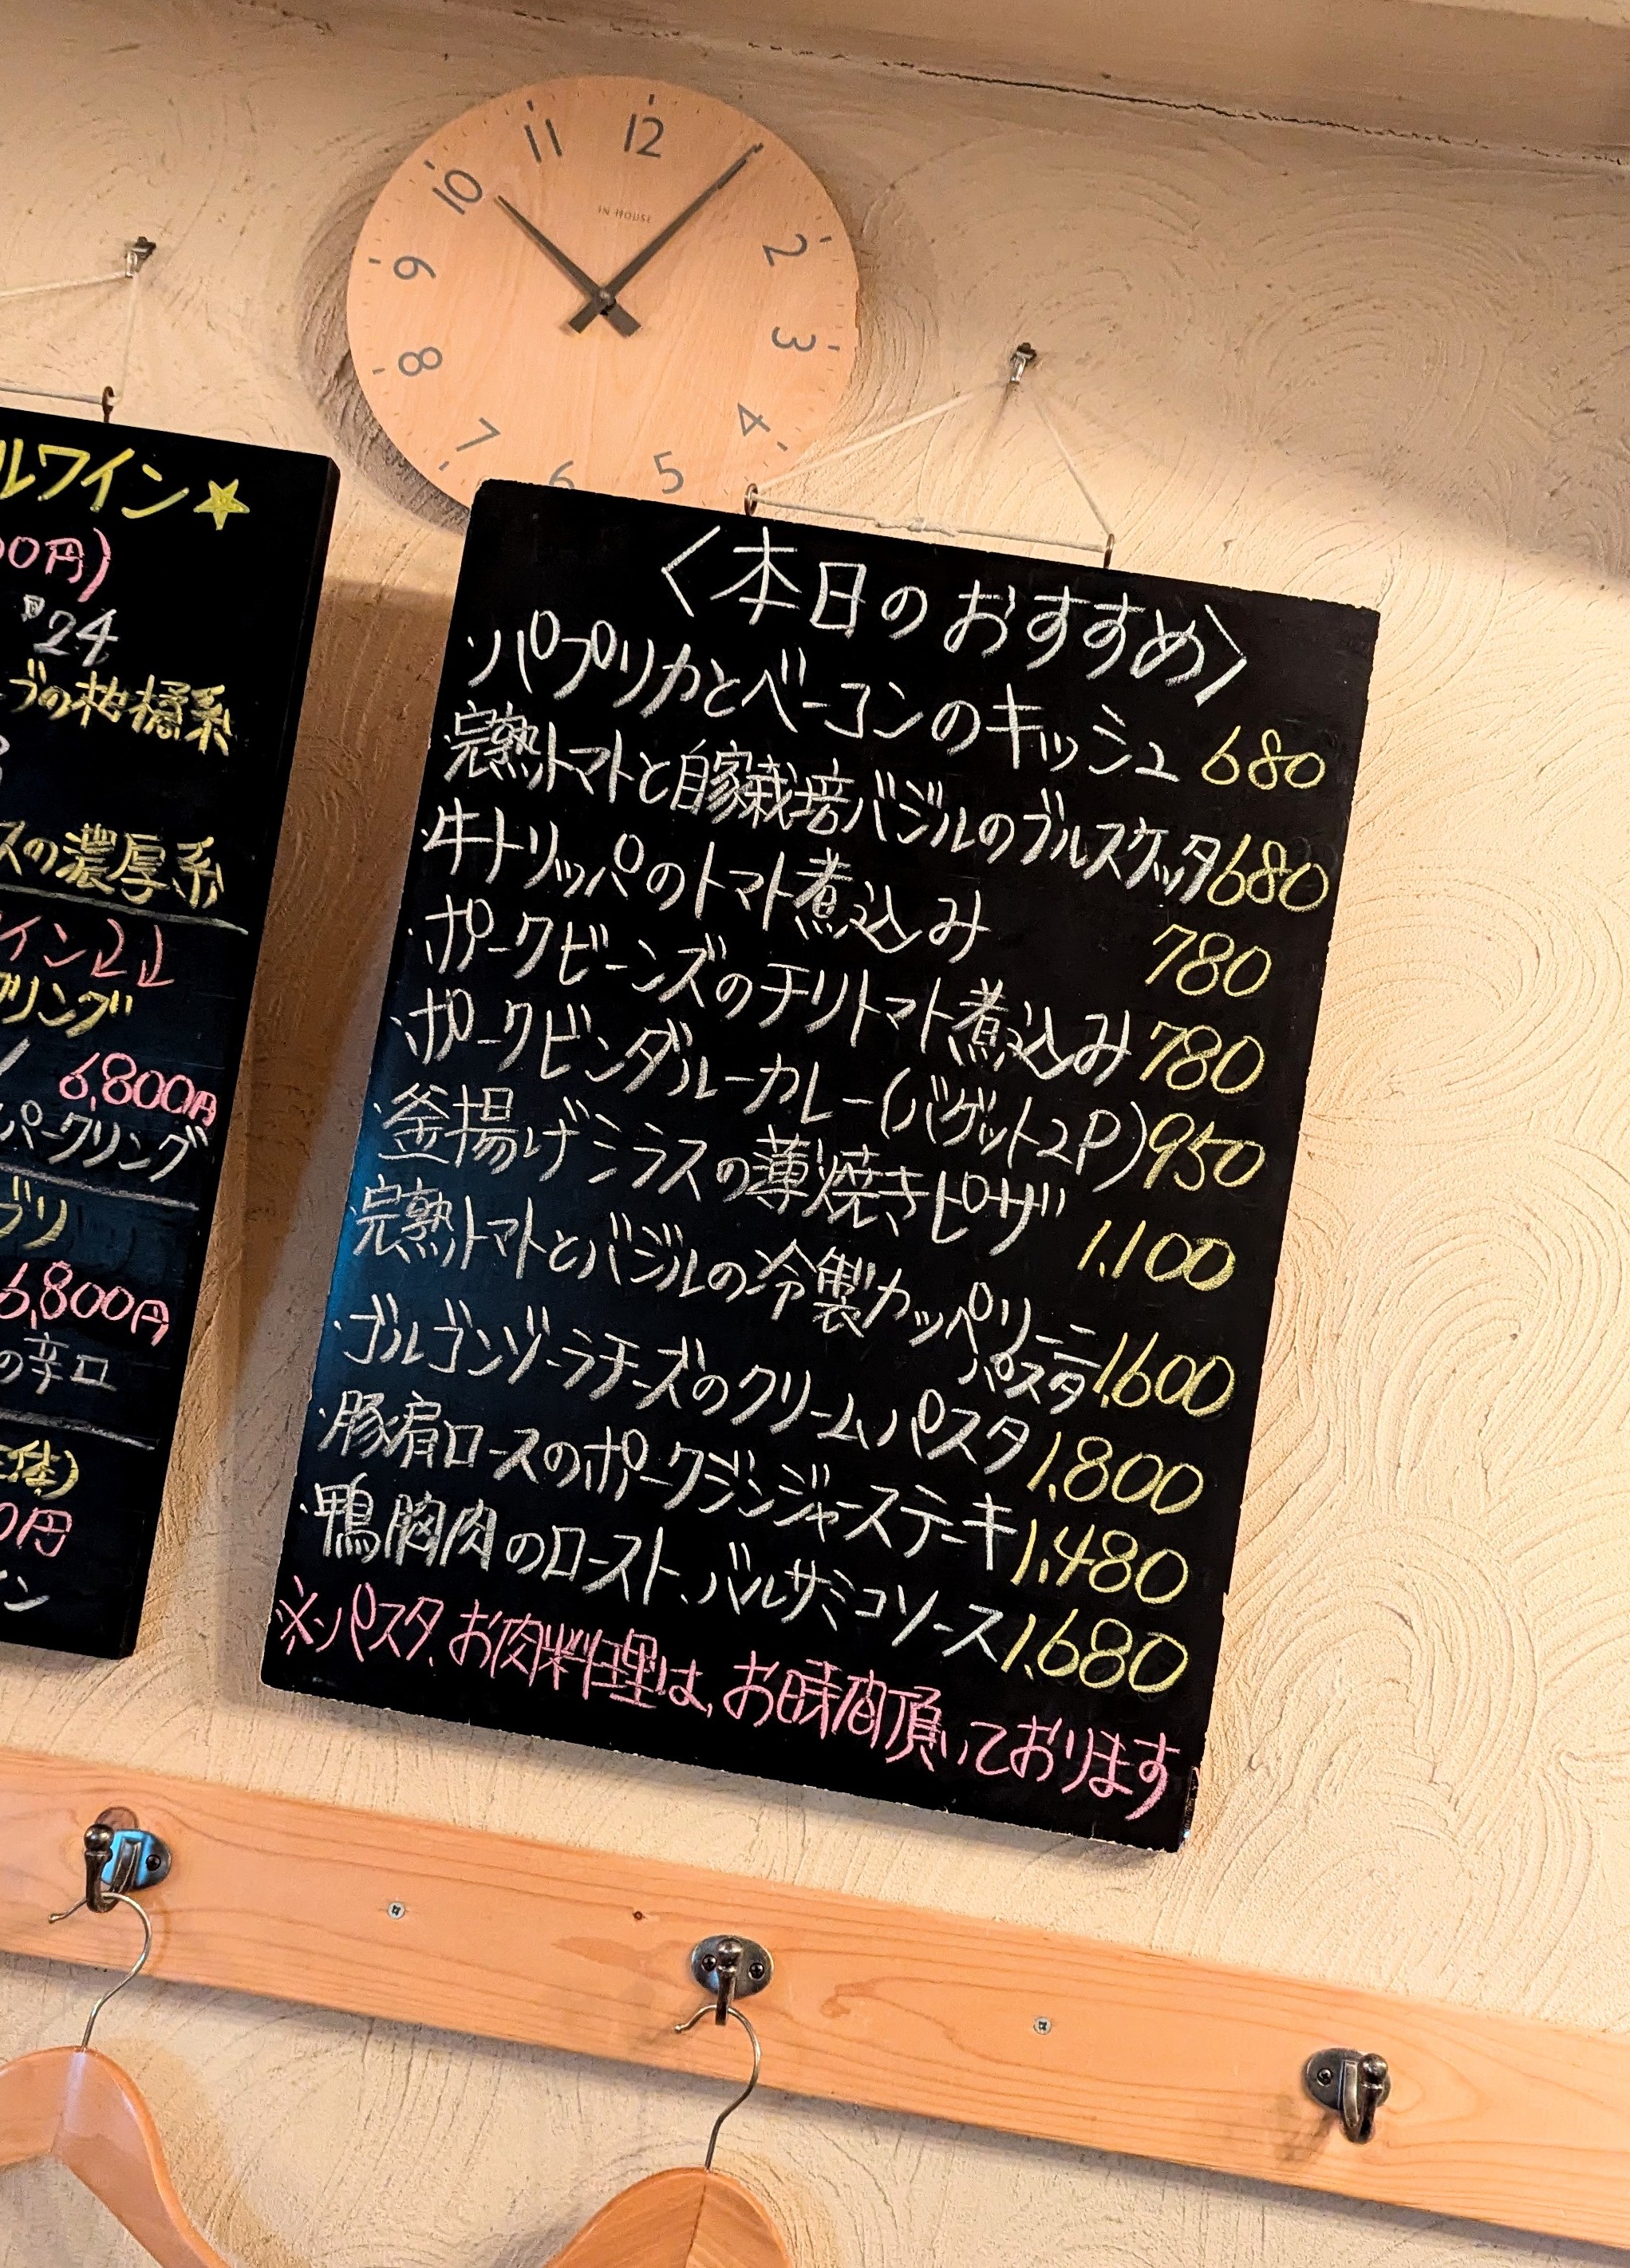 12
11
10
9
8
7
6
5
4
3
2
IN HOUSE
ルワイン★
00円)
'24
ブの柑橘系
スの濃厚系
イン↓↓
プリング
6,800円
パークリング
ブリ
6,800円
の辛口
0円
イン
〈本日のおすすめ〉
・パプリカとベーコンのキッシュ 680
・完熟トマトと自家栽培バジルのブルスケッタ 680
・牛トリッパのトマト煮込み 780
・ポークビーンズのチリトマト煮込み 780
・ポークビンダルーカレー(バゲット2P) 950
・釜揚げシラスの薄焼きピザ 1,100
・完熟トマトとバジルの冷製カッペリーニ
パスタ 1,600
・ゴルゴンゾーラチーズのクリームパスタ 1,800
・豚肩ロースのポークジンジャーステーキ 1,480
・鴨胸肉のロースト、バルサミコソース 1,680
※パスタ、お肉料理は、お時間頂いております